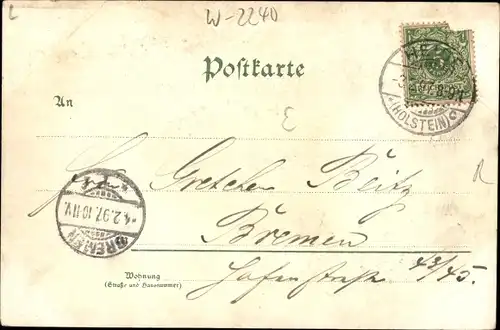 W-2240
Postkarte
(HOLSTEIN)
An
E
Gretchen Beitz
4.2.97.10-11V.
BREMEN
Bremen
Hafenstraße 43/45.
Wohnung
(Straße und Hausnummer)